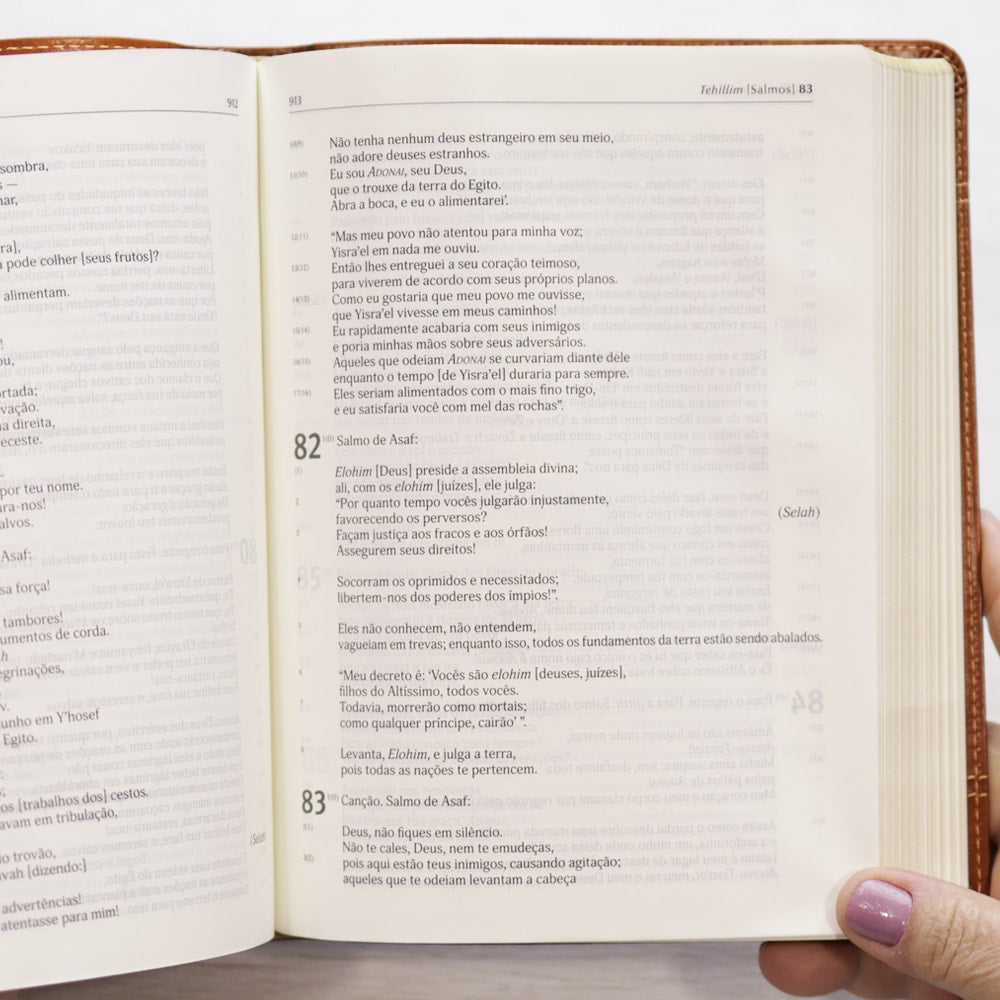 912
sombra,
pode colher [seus frutos]?
alimentam.
ortada;
direita,
por teu nome.
Asaf:
força!
tambores!
umentos de corda.
egrinações,
em Y'hosef
Egito.
[trabalhos dos] cestos.
avam em tribulação,
trovão,
[dizendo:]
(Selah)
advertências!
atentasse para mim!
913
Tehillim [Salmos] 83
10(9) Não tenha nenhum deus estrangeiro em seu meio,
não adore deuses estranhos.
11(10) Eu sou ADONAI, seu Deus,
que o trouxe da terra do Egito.
Abra a boca, e eu o alimentarei’.
12(11) “Mas meu povo não atentou para minha voz;
Yisra'el em nada me ouviu.
13(12) Então lhes entreguei a seu coração teimoso,
para viverem de acordo com seus próprios planos.
14(13) Como eu gostaria que meu povo me ouvisse,
que Yisra'el vivesse em meus caminhos!
15(14) Eu rapidamente acabaria com seus inimigos
e poria minhas mãos sobre seus adversários.
16(15) Aqueles que odeiam ADONAI se curvariam diante dele
enquanto o tempo [de Yisra'el] duraria para sempre.
17(16) Eles seriam alimentados com o mais fino trigo,
e eu satisfaria você com mel das rochas”.
82 1(0) Salmo de Asaf:
(1) Elohim [Deus] preside a assembleia divina;
ali, com os elohim [juízes], ele julga:
2 “Por quanto tempo vocês julgarão injustamente,
favorecendo os perversos? (Selah)
3 Façam justiça aos fracos e aos órfãos!
Assegurem seus direitos!
4 Socorram os oprimidos e necessitados;
libertem-nos dos poderes dos ímpios!”.
5 Eles não conhecem, não entendem,
vagueiam em trevas; enquanto isso, todos os fundamentos da terra estão sendo abalados.
6 “Meu decreto é: ‘Vocês são elohim [deuses, juízes],
filhos do Altíssimo, todos vocês.
7 Todavia, morrerão como mortais;
como qualquer príncipe, cairão’ ”.
8 Levanta, Elohim, e julga a terra,
pois todas as nações te pertencem.
83 1(0) Canção. Salmo de Asaf:
2(1) Deus, não fiques em silêncio.
Não te cales, Deus, nem te emudeças,
3(2) pois aqui estão teus inimigos, causando agitação;
aqueles que te odeiam levantam a cabeça